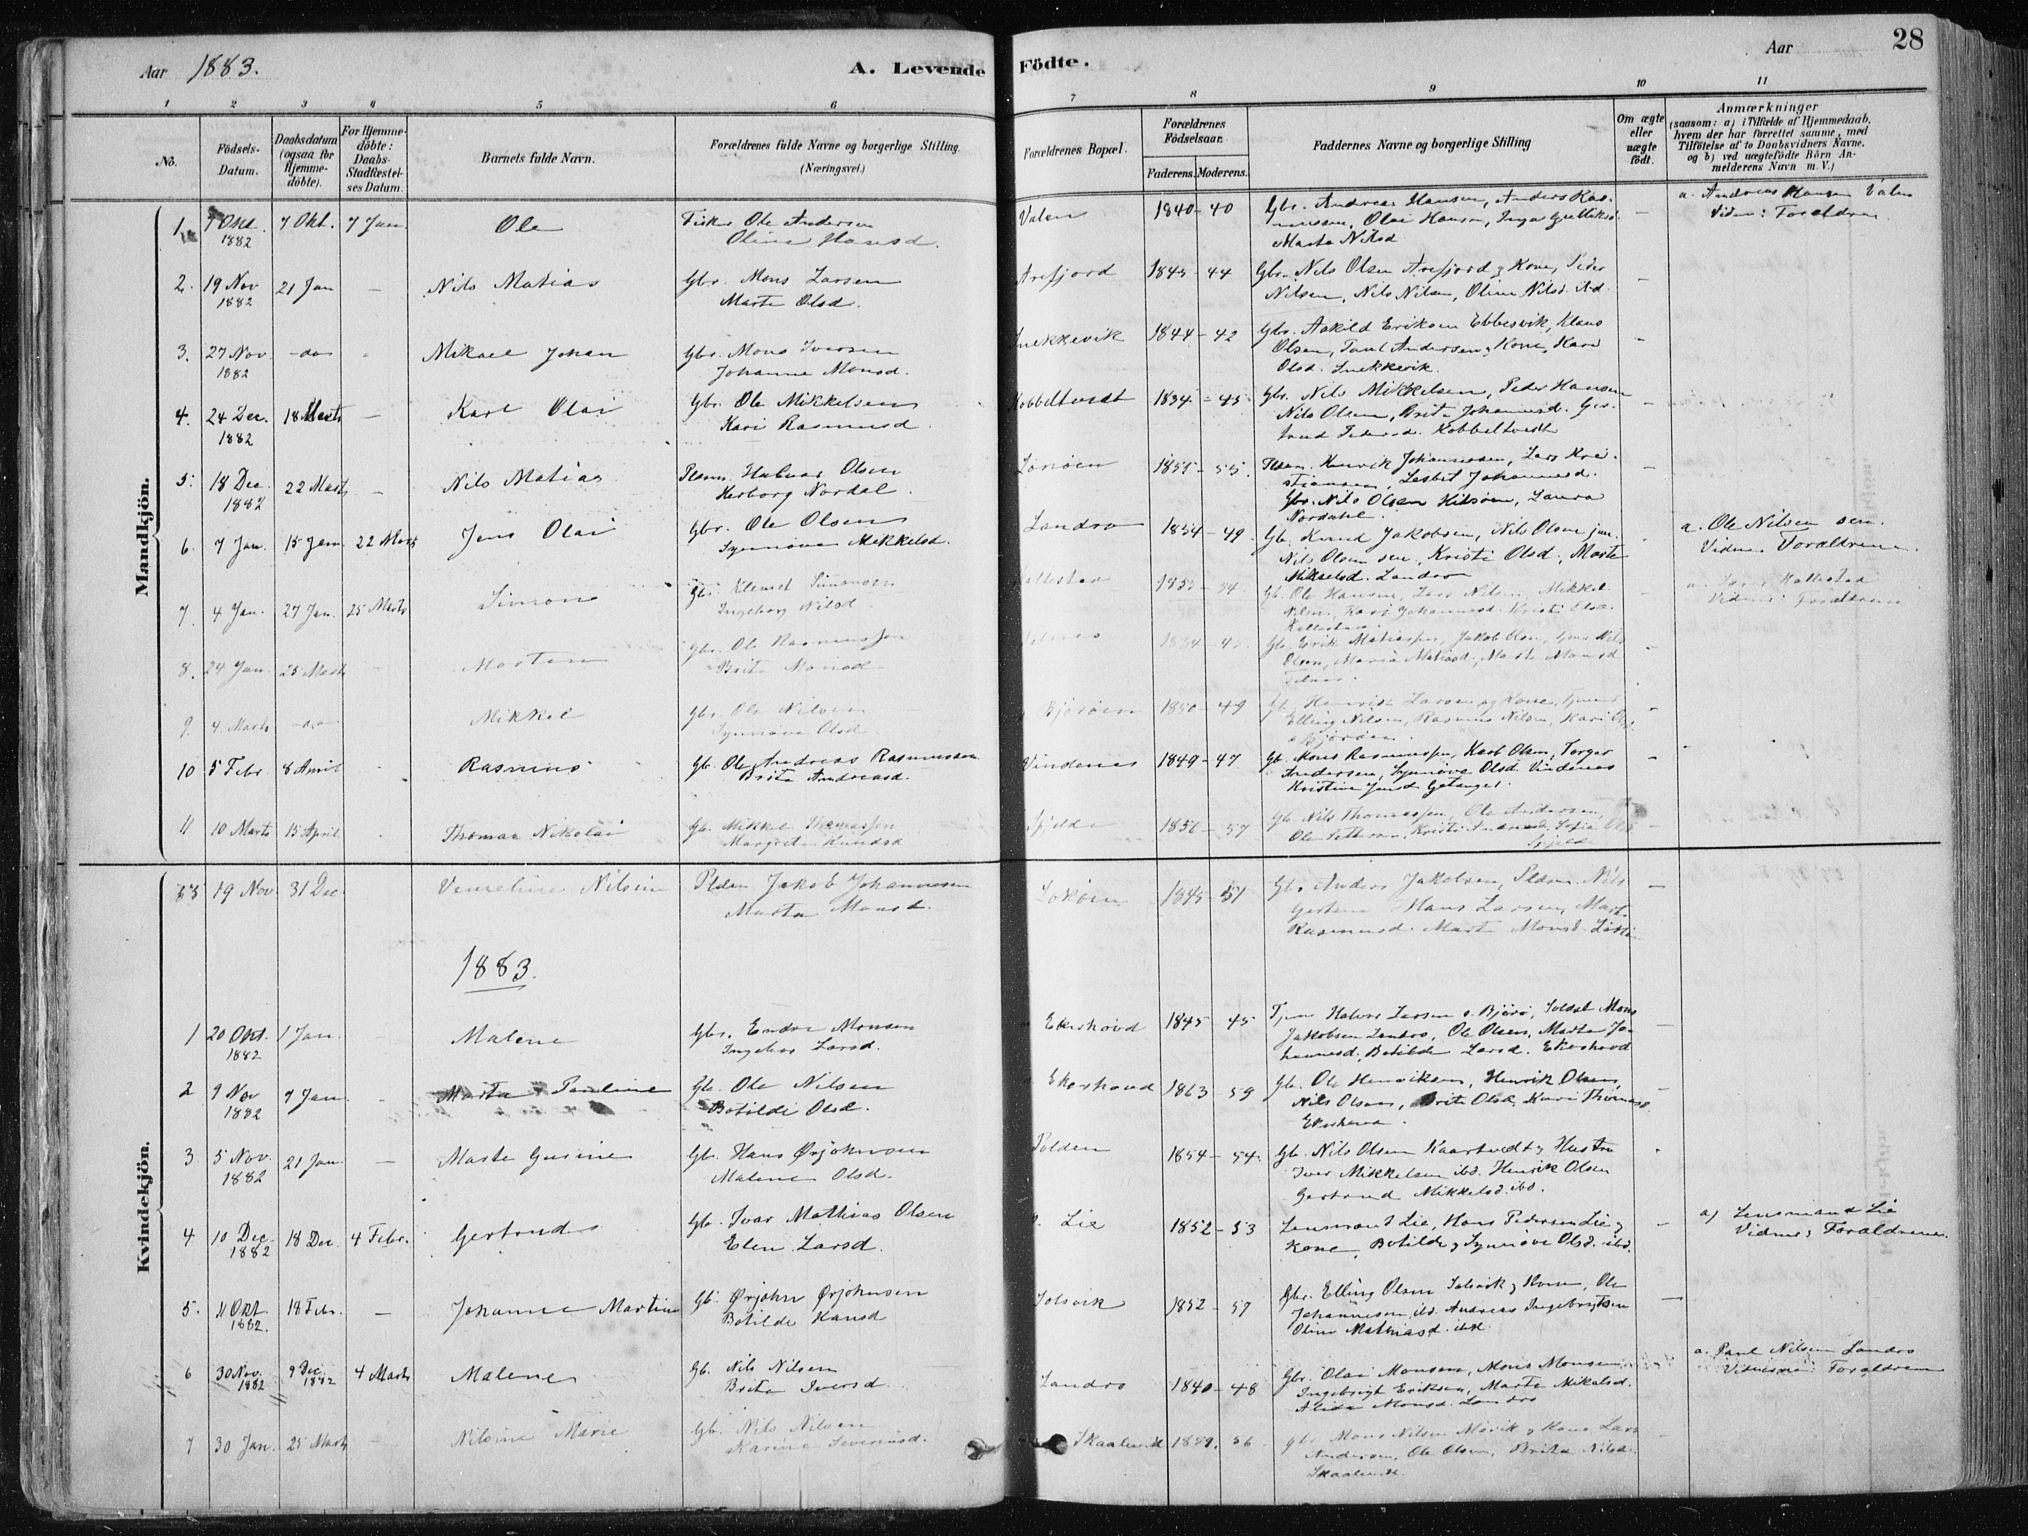 Aar 1883.
A. Levende Födte.
Aar
28
1 2 3 4 5 6 7 8 9 10 11
No.
Födsels-Datum.
Daabsdatum (ogsaa for Hjemmedöbte).
For Hjemmedöbte: Daabs-Stadfæstelses Datum.
Barnets fulde Navn.
Forældrenes fulde Navne og borgerlige Stilling. (Næringsvei.)
Forældrenes Bopæl.
Forældrenes Födselsaar.
Faderens. Moderens.
Faddernes Navne og borgerlige Stilling
Om ægte eller uægte födt.
Anmærkninger
(saasom: a) i Tilfælde af Hjemmedaab, hvem der har forrettet samme, med Tilföielse af to Daabsvidners Navne, og b) ved uægtefödte Börn Anmelderens Navn m. V.)
Mandkjön.
1. 7 Okt. 1882 7 Okt. 7 Jan. Ole
Fisker Ole Andersen
Oline Hansd.
Valen 1840-40
Gbr. Andreas Hansen, Anders Rasmussen, Olai Hansen, Inga
Marta Nilsd
a. Andreas Hansen Valen
Vidner: Forældrene
2. 19 Nov 1882 21 Jan - Nils Matias
Gbr. Mons Larsen
Marte Olsd.
Arefjord 1845-44
Gbr. Nils Olsen Arefjord & Kone, Peder
Nilsen, Nils Nilsen, Oline Nilsd. Ad.
3. 27 Nov. 1882 -do- Mikael Johan
Gbr. Mons Iversen
Johanne Monsd.
Snekkevik 1844-42
Gbr. Askild Eriksen Ebbesvik, Klaus
Olsen, Paul Andersen & Kone, Kari
Olsd. Snekkevik.
4. 24 Dec. 1882 18 Marts - Karl Olai
Gbr. Ole Mikkelsen
Kari Rasmusd.
Kobbeltvedt 1834-45
Gbr. Nils Mikkelsen, Peder Hansen
Nils Olsen, Brita Johannesd. Gertrud Pedersd. Kobbeltvedt
5. 18 Dec. 1882 22 Marts - Nils Matias
Halvar Olsen
Herborg Nordal.
1851-55.
Johannessen, Lars Kristiansen, Lesbet Johannesd.
Gbr. Nils Olsen, Laura
Nordahl.
6. 7 Jan. 15 Jan. 22 Marts Jens Olai
Gbr. Ole Olsen
Synnøva Mikkelsd.
Landro 1854-49.
Gb. Knud Jakobsen, Nils Olsen jun.
Nils Olsen sen., Kristi Olsd, Marte
Mikaelsd. Landro
a. Ole Nilsen sen.
Vidner. Forældrene.
7 4 Jan. 27 Jan. 25 Marts Simon
Gbr. Klemet Simonsen
Ingeborg Nilsd.
Kallestad 1853-54.
Gb. Ole Hansen, Lars Nilsen, Mikkel
Nilsen, Kari Johannesd. Kristi Olsd.
Kallestad
Vidner: Forældrene
8. 24 Jan. 25 Marts Morten
Gbr. Ole Rasmussen
Brita Monsd
1834-40
Gb. Erik Matiassen, Jakob Olsen, Nils
Olsen, Maria Matiasd, Marte Monsd
9 4 Marts -do- Mikkel
Gbr. Ole Nilsen
Synnøva Olsd
Bjørøen 1850-49
Gb. Henrik Larsen og Kone,
Elling Nilsen, Rasmus Nilsen, Kari
10 5 Febr. 8 April Rasmus
Gb. Ole Andreas Rasmussen
Brita Andreasd.
Vindenes 1849-47
Gb. Mons Rasmussen, Karl Olsen, Torger
Andersen, Synnøve Olsd. Vindenes
Kristine Jensd
11 10 Marts 15 April Thomas Nikolai
Gb. Mikkel Thomassen
Margreta Knudsd
1856-57
Gb. Nils Thomassen, Ole Andersen,
Kvindekjön.
53 19 Nov 31 Dec. Nilsine
Jakob Johannesen
Marta Monsd.
1845-51
Gbr. Anders Jakobsen, Nils
Hans Larsen, Marta
Rasmusd. Marta Monsd.
1883.
1 20 Okt. 1882 1 Jan. Malene
Gbr. Endre Monsen
Ingebor Larsd.
Ekerhovd 1845-45
Halvor Larsen Bjørø, Soldat Mons
Jakobsen Landro, Ole Olsen, Marta Johannesd, Botilde Larsd. Ekerhovd
2 9 Nov 1882 7 Jan. - Marta Pauline
Gb. Ole Nilsen
Botilde Olsd.
Ekerhovd 1863 59
Gb. Ole Henriksen, Henrik Olsen,
Nils Olsen, Brita Olsd, Kari Thomasd.
Ekerhovd.
3 5 Nov. 1882 21 Jan. - Marta Gurine
Gb. Hans Ørjohnsen
Malene Olsd.
Polden 1854-54.
Gb. Nils Olsen Kaartvedt & Hustru
Iver Mikkelsen ibd. Henrik Olsen
Gertrud Mikkelsd. ibd.
4 10 Dec. 1882 18 Dec. 4 Febr. Gertrud
Gb. Ivar Mathias Olsen
Elen Larsd.
Lie 1852-53
Lensmand Lie, Hans Pedersen Lie &
Kone, Botilde & Synnøve Olsd. ibd.
a) Lensmand Lie
Vidner: Forældrene.
5. 11 Okt 1882. 18 Febr. - Johanne Martine
Gb. Ørjohn Ørjohnsen
Botilde Hansd
Solsvik 1852-57
Gbr. Elling Olsen Solsvik & Kone, Ole
Johannesen ibd. Andreas Ingebrigtsen
Oline Mathiasd. ibd.
6 30 Nov. 1882 9 Dec. 1882 4 Marts Malene
Gb. Nils Nilsen
Brita Iversd.
Landro 1840-48
Gbr. Olai Monsen, Mons Monsen
Ingebrigt Eriksen, Marta Mikalsd.
Alida Monsd. Landro
a. Paul Nilsen Landro
Vidner: Forældrene
7 30 Jan. 25 Marts Nilsine Marie
Gb. Nils Nilsen
Karine Severinsd.
Skaalevik 1859. 56
Gbr. Mons Nilsen Møvik & Kone Lars
Andersen, Ole Olsen, Brita Nilsd.
Skaalevik.